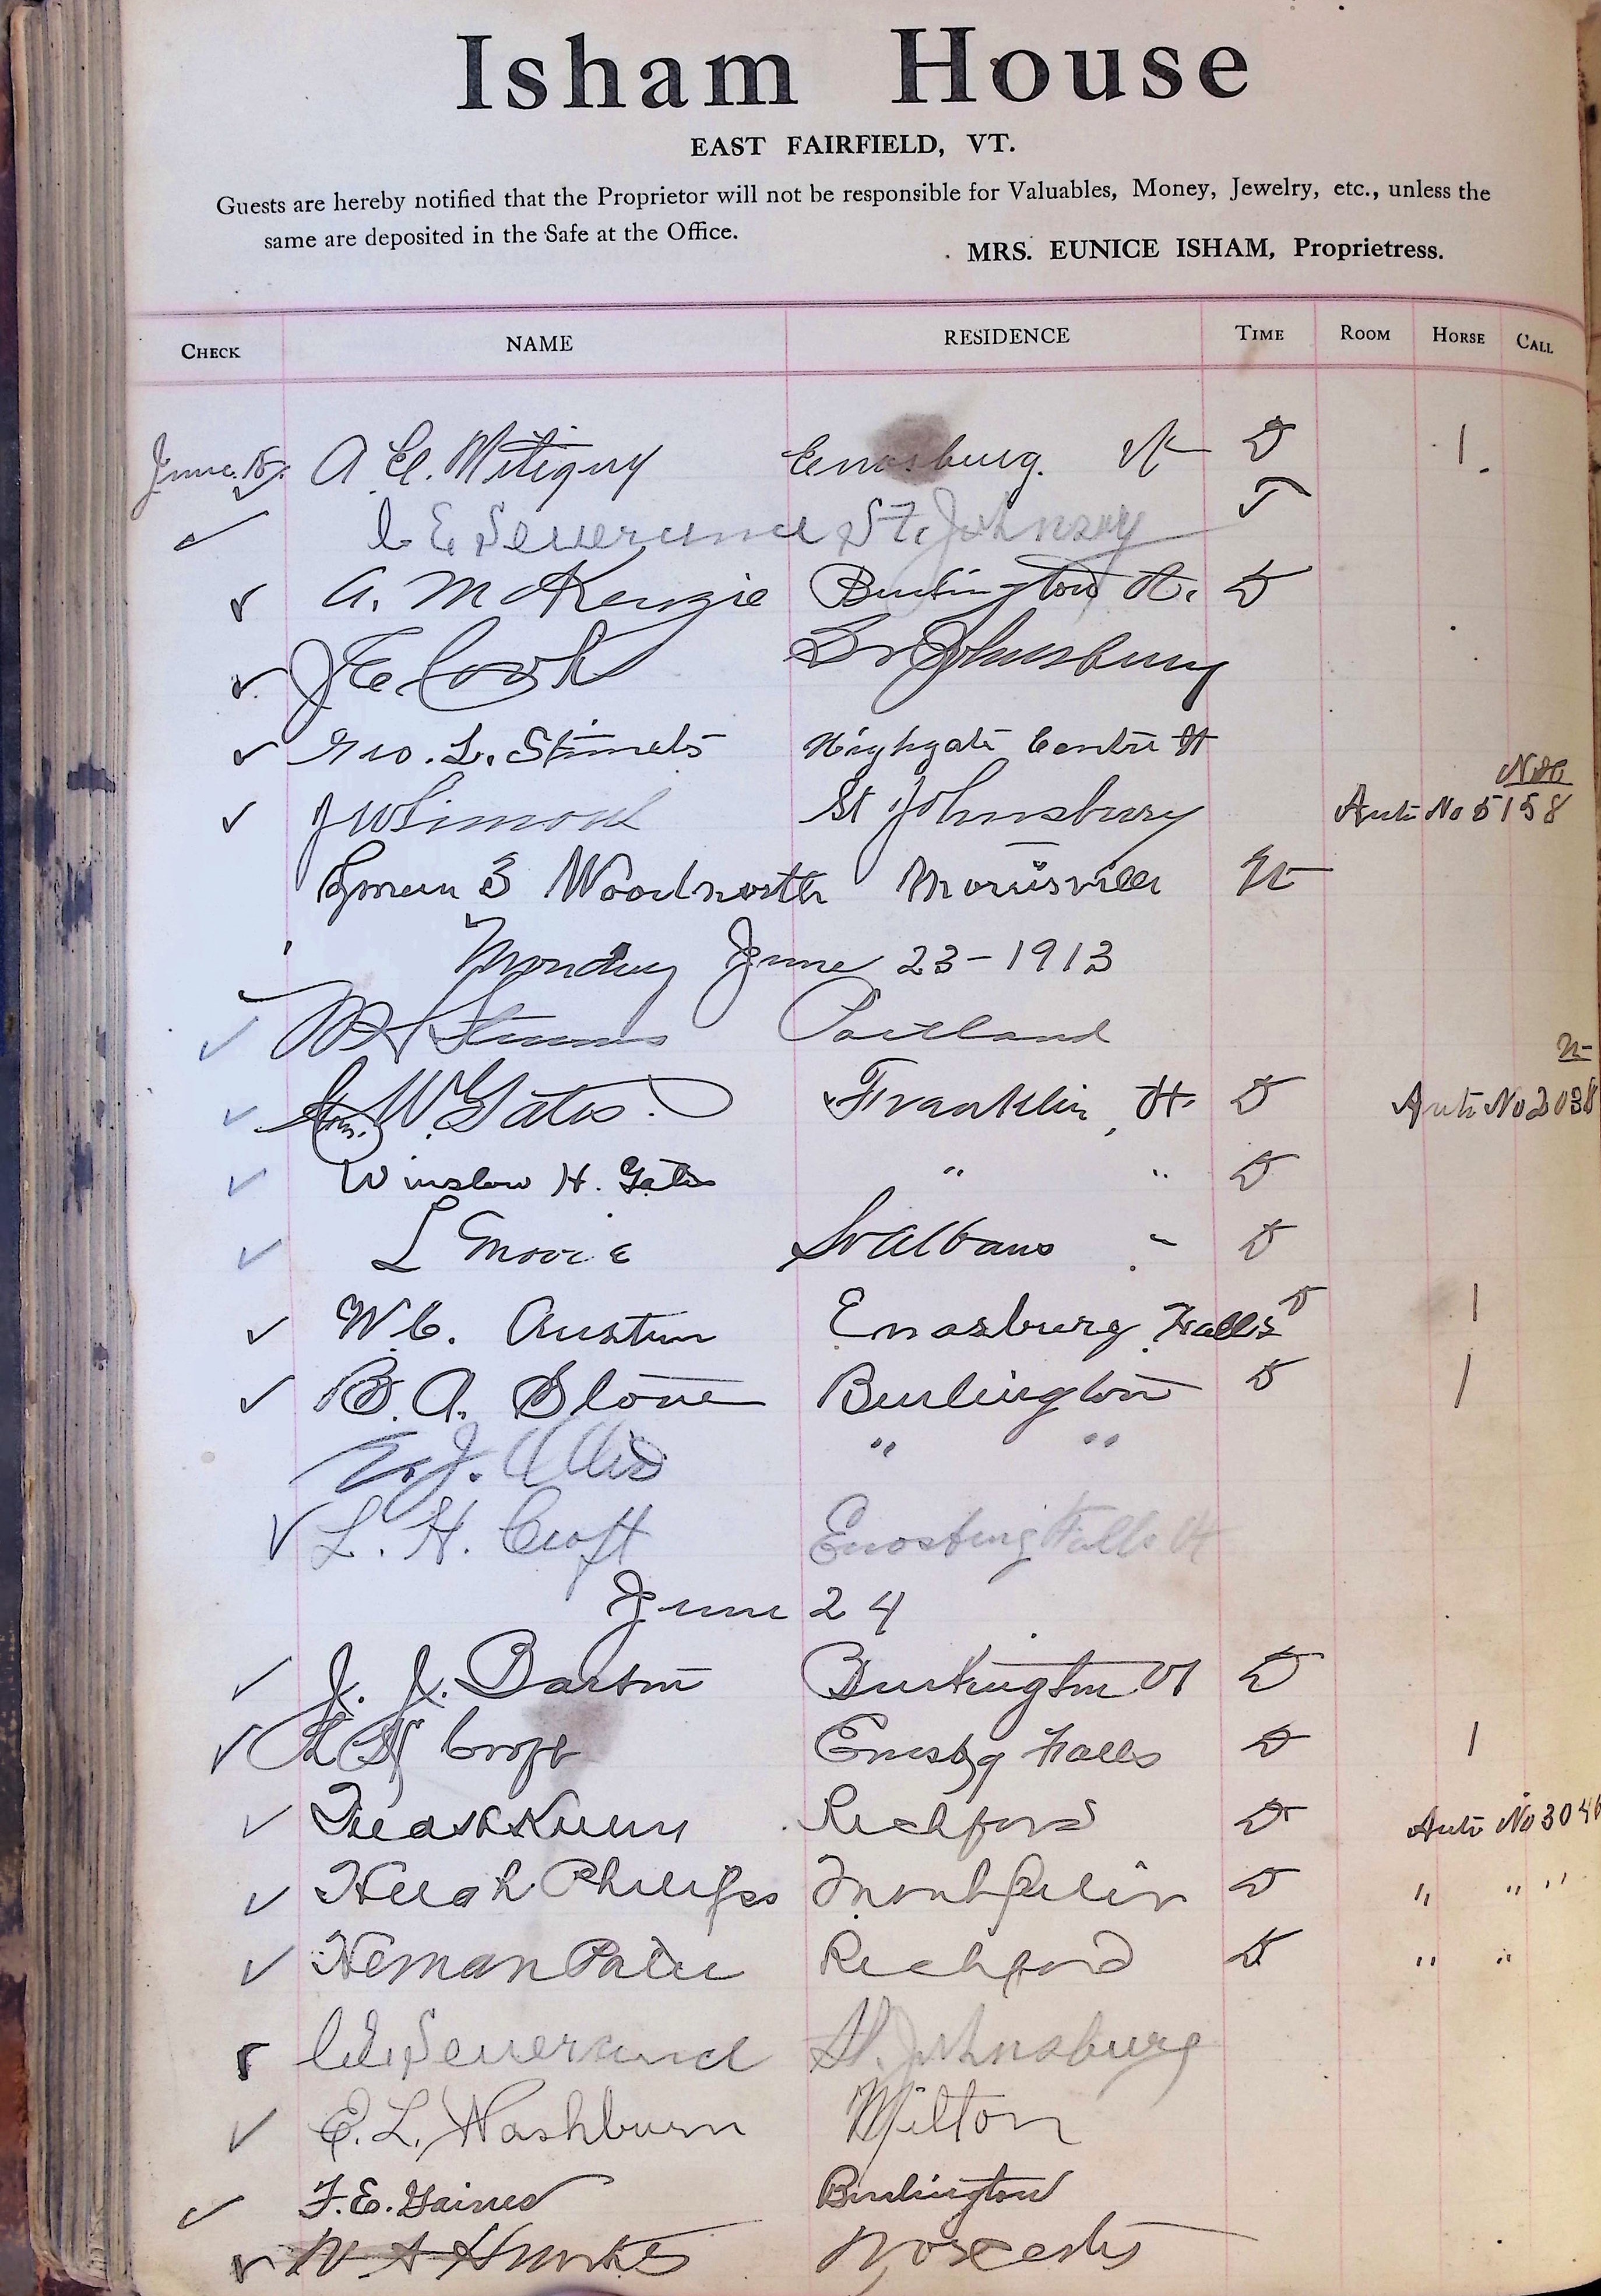 Isham House
EAST FAIRFIELD, VT.
Guests are hereby notified that the Proprietor will not be responsible for Valuables, Money, Jewelry, etc., unless the
same are deposited in the Safe at the Office.
MRS. EUNICE ISHAM, Proprietress.
CHECK NAME RESIDENCE TIME ROOM HORSE CALL
June A. E. Mitiguy Enosburg. Vt D 1
E Severance St. Johnsby
A. McKenzie Burlington Vt. D
J E Cook St Johnsbury
Geo. L. Stinets Highgate Centre Vt
J W Simonds St Johnsbury Auto No 5158
Lyman B Woodworth Morrisville Vt
Monday June 23-1913
Portland
W. Gates Franklin, Vt. D Auto No 2038
Winslow H. Gates " " D
L Moore St Albans " D
W. C. Austin Enosburg Falls D 1
B. A. Stone Burlington D 1
E. J. Ellis " "
L. H. Croft Enosburg Falls Vt
June 24
J. J. Barton Burlington Vt D
L H Croft Enosbg Falls D 1
Richford D Auto No 3046
Hugh Phillips Montpelier D " " "
Heman Richford D " "
C E Severance St. Johnsburg
E. L. Washburn Milton
F. E. Gaines Burlington
W A Worcester